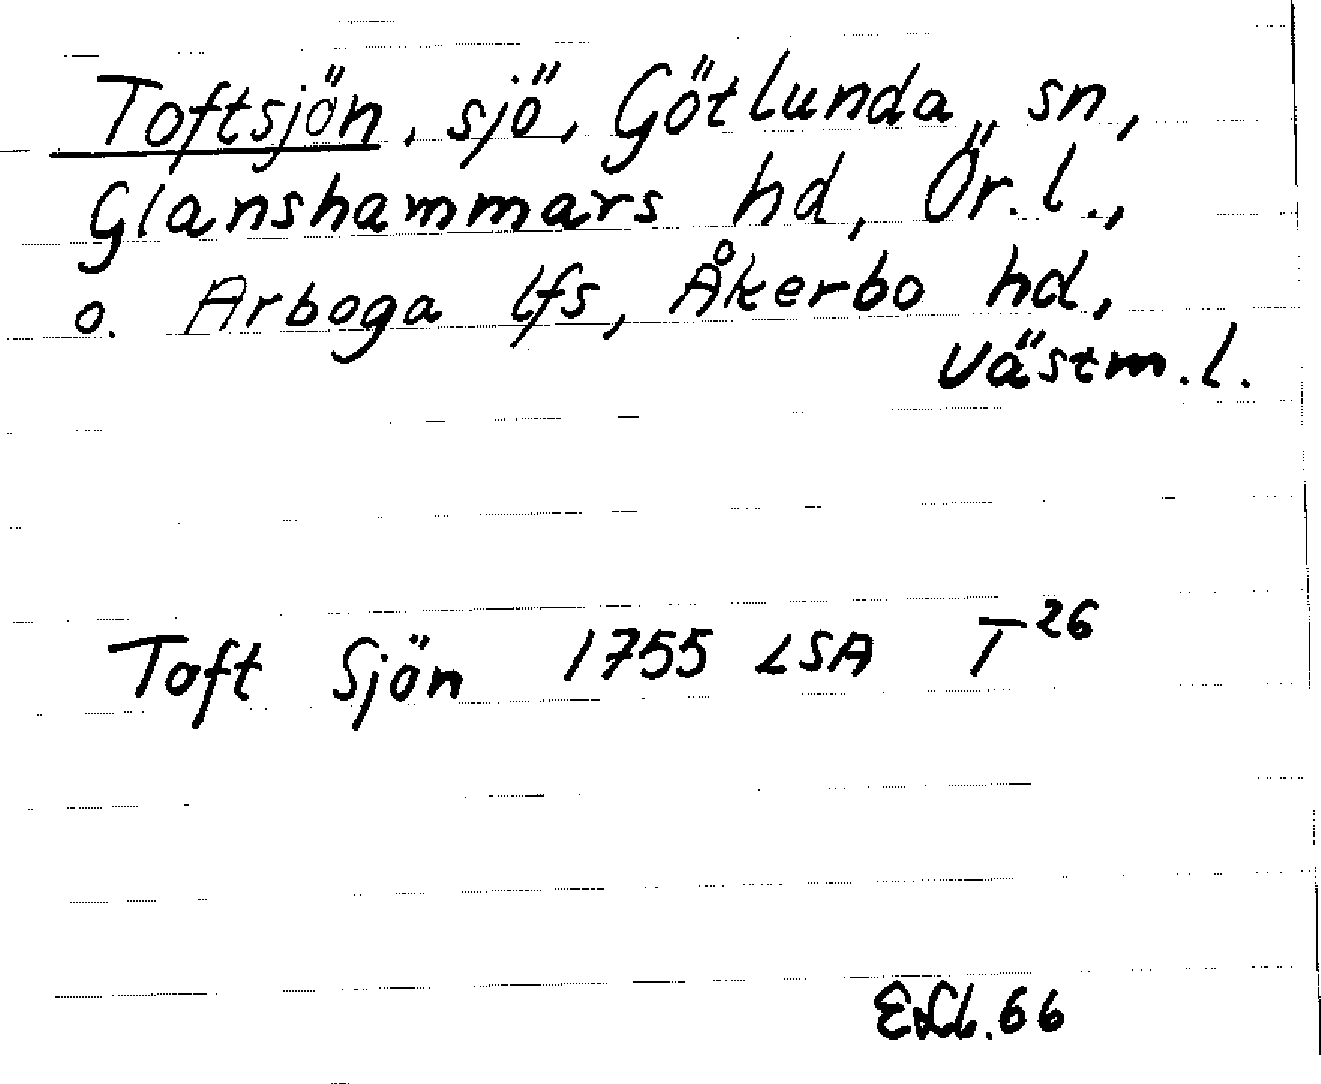 Toftsjön, sjö, Götlunda sn,
Glanshammars hd, Ör. l.,
o. Arboga lfs, Åkerbo hd,
Västm. l.
Toft Sjön 1755 LSA T 26
66